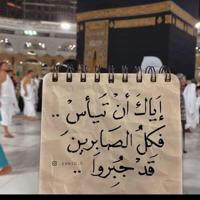 إياكَ أنْ تَيأسْ ..
فَكلُ الصَابرينَ
قَدْ جُبروا ..